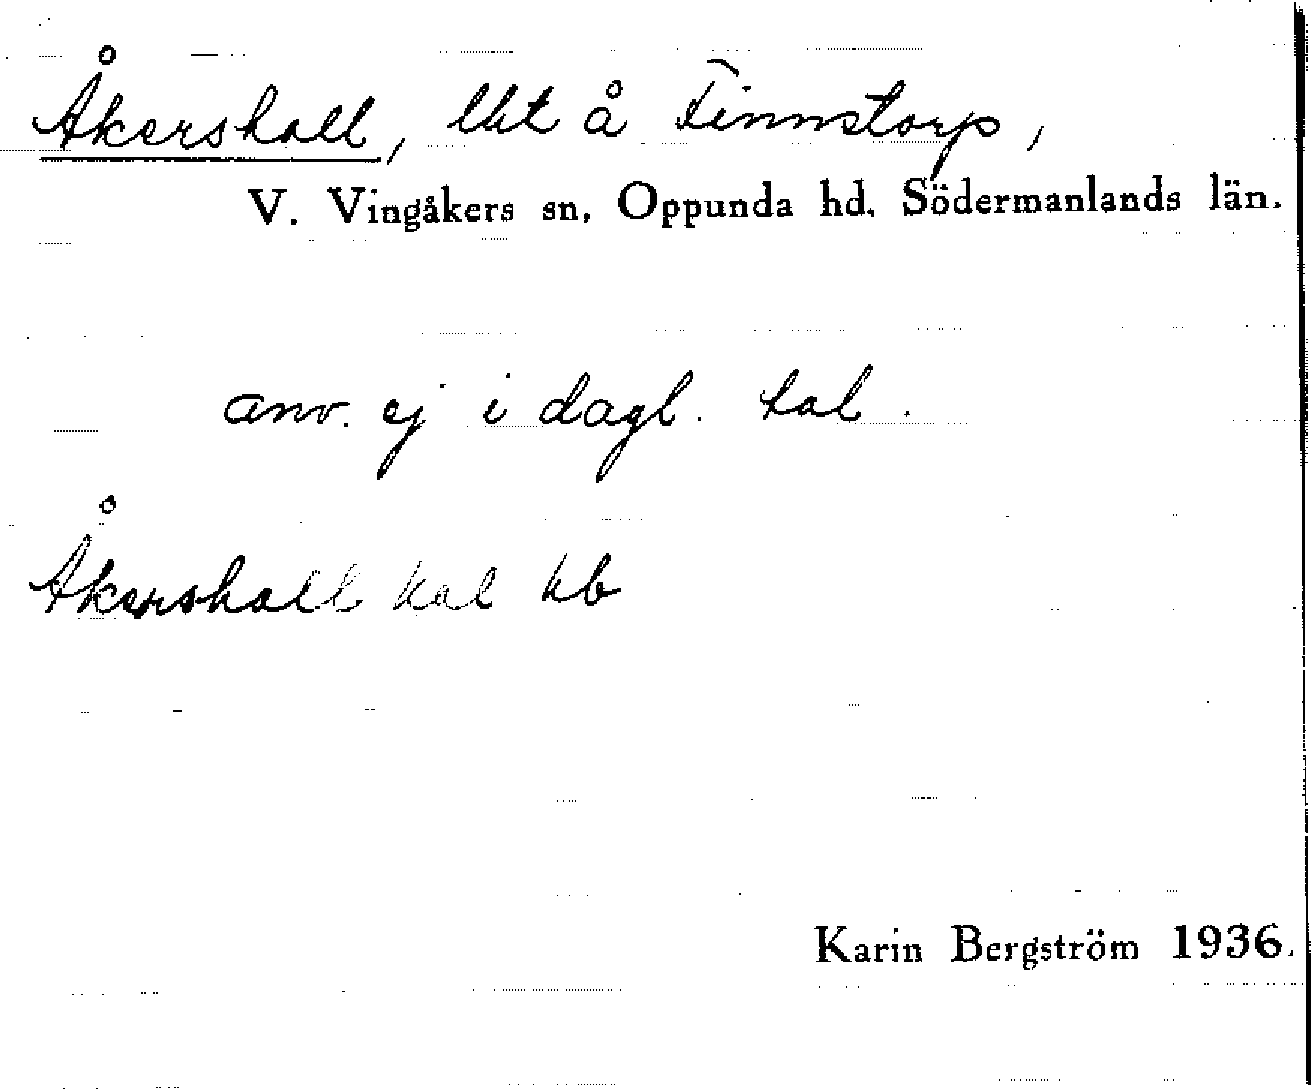 Åkershall, lht å Finnstorp,
V. Vingåkers sn, Oppunda hd, Södermanlands län.
anv. ej i dagl. tal.
Åkershall hal hb
Karin Bergström 1936.